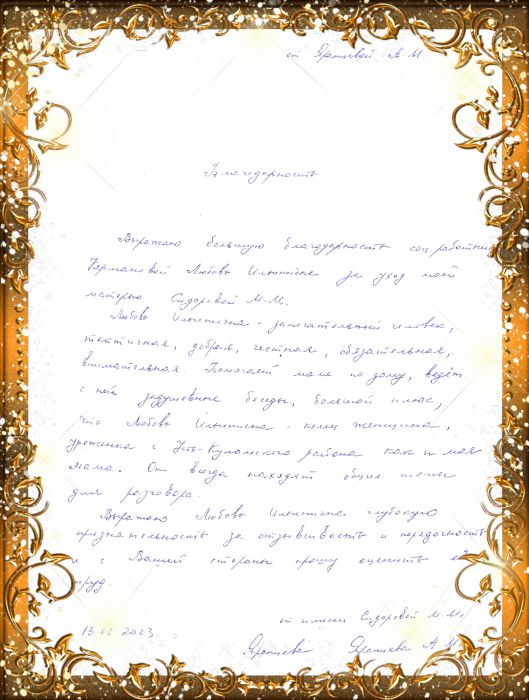 от Яронцевой А.М.
Благодарность
Выражаю большую благодарность соц.работнику
Германовой Любовь Ильиничне за уход моей
матерью Сидоровой М.М.
Любовь Ильинична - замечательный человек,
тактичная, добрая, честная, обязательная,
внимательная. Помогает маме по дому, ведёт
с ней задушевные беседы, большой плюс,
что Любовь Ильинична - коми женщина,
уроженка с Усть-Куломского района как и моя
мама. Они всегда находят общие темы
для разговора.
Выражаю Любовь Ильиничне глубокую
признательность за отзывчивость и порядочность
и с Вашей стороны прошу оценить её
труд.
от имени Сидоровой М.М.
13.02 2023 А.М.